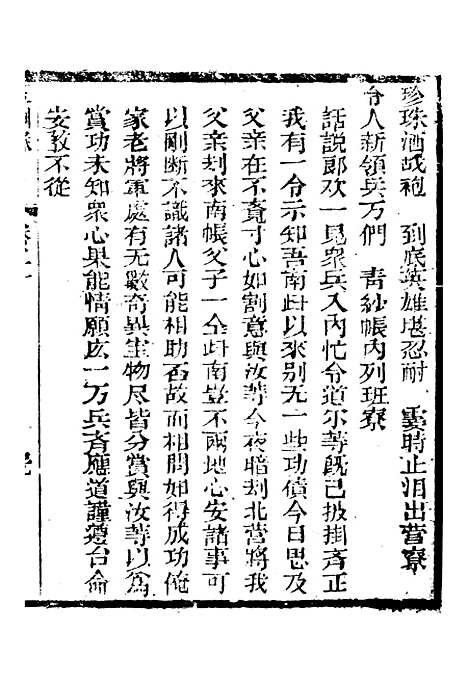 珍珠洒战袍　到底英雄堪忍耐　霎時止泪出营寮
令人新領兵万們　青紗帳内列班寮
話說郎欢一見眾兵入内忙令道尔等既已披掛斉正
我有一令示知吾南歸以來别无一些功债今日思及
父亲在不斉寸心如割意與汝等今夜暗刦北营將我
父亲刦來南帳父子一仝歸南豈不兩地心安諸事可
以剛断不識諸人可能相助否故而相問如得成功俺
家老將軍處有无數奇異宝物尽皆分賞與汝等以為
賞功未知眾心果能情願庅一万兵斉應道謹遵台命
安敢不從